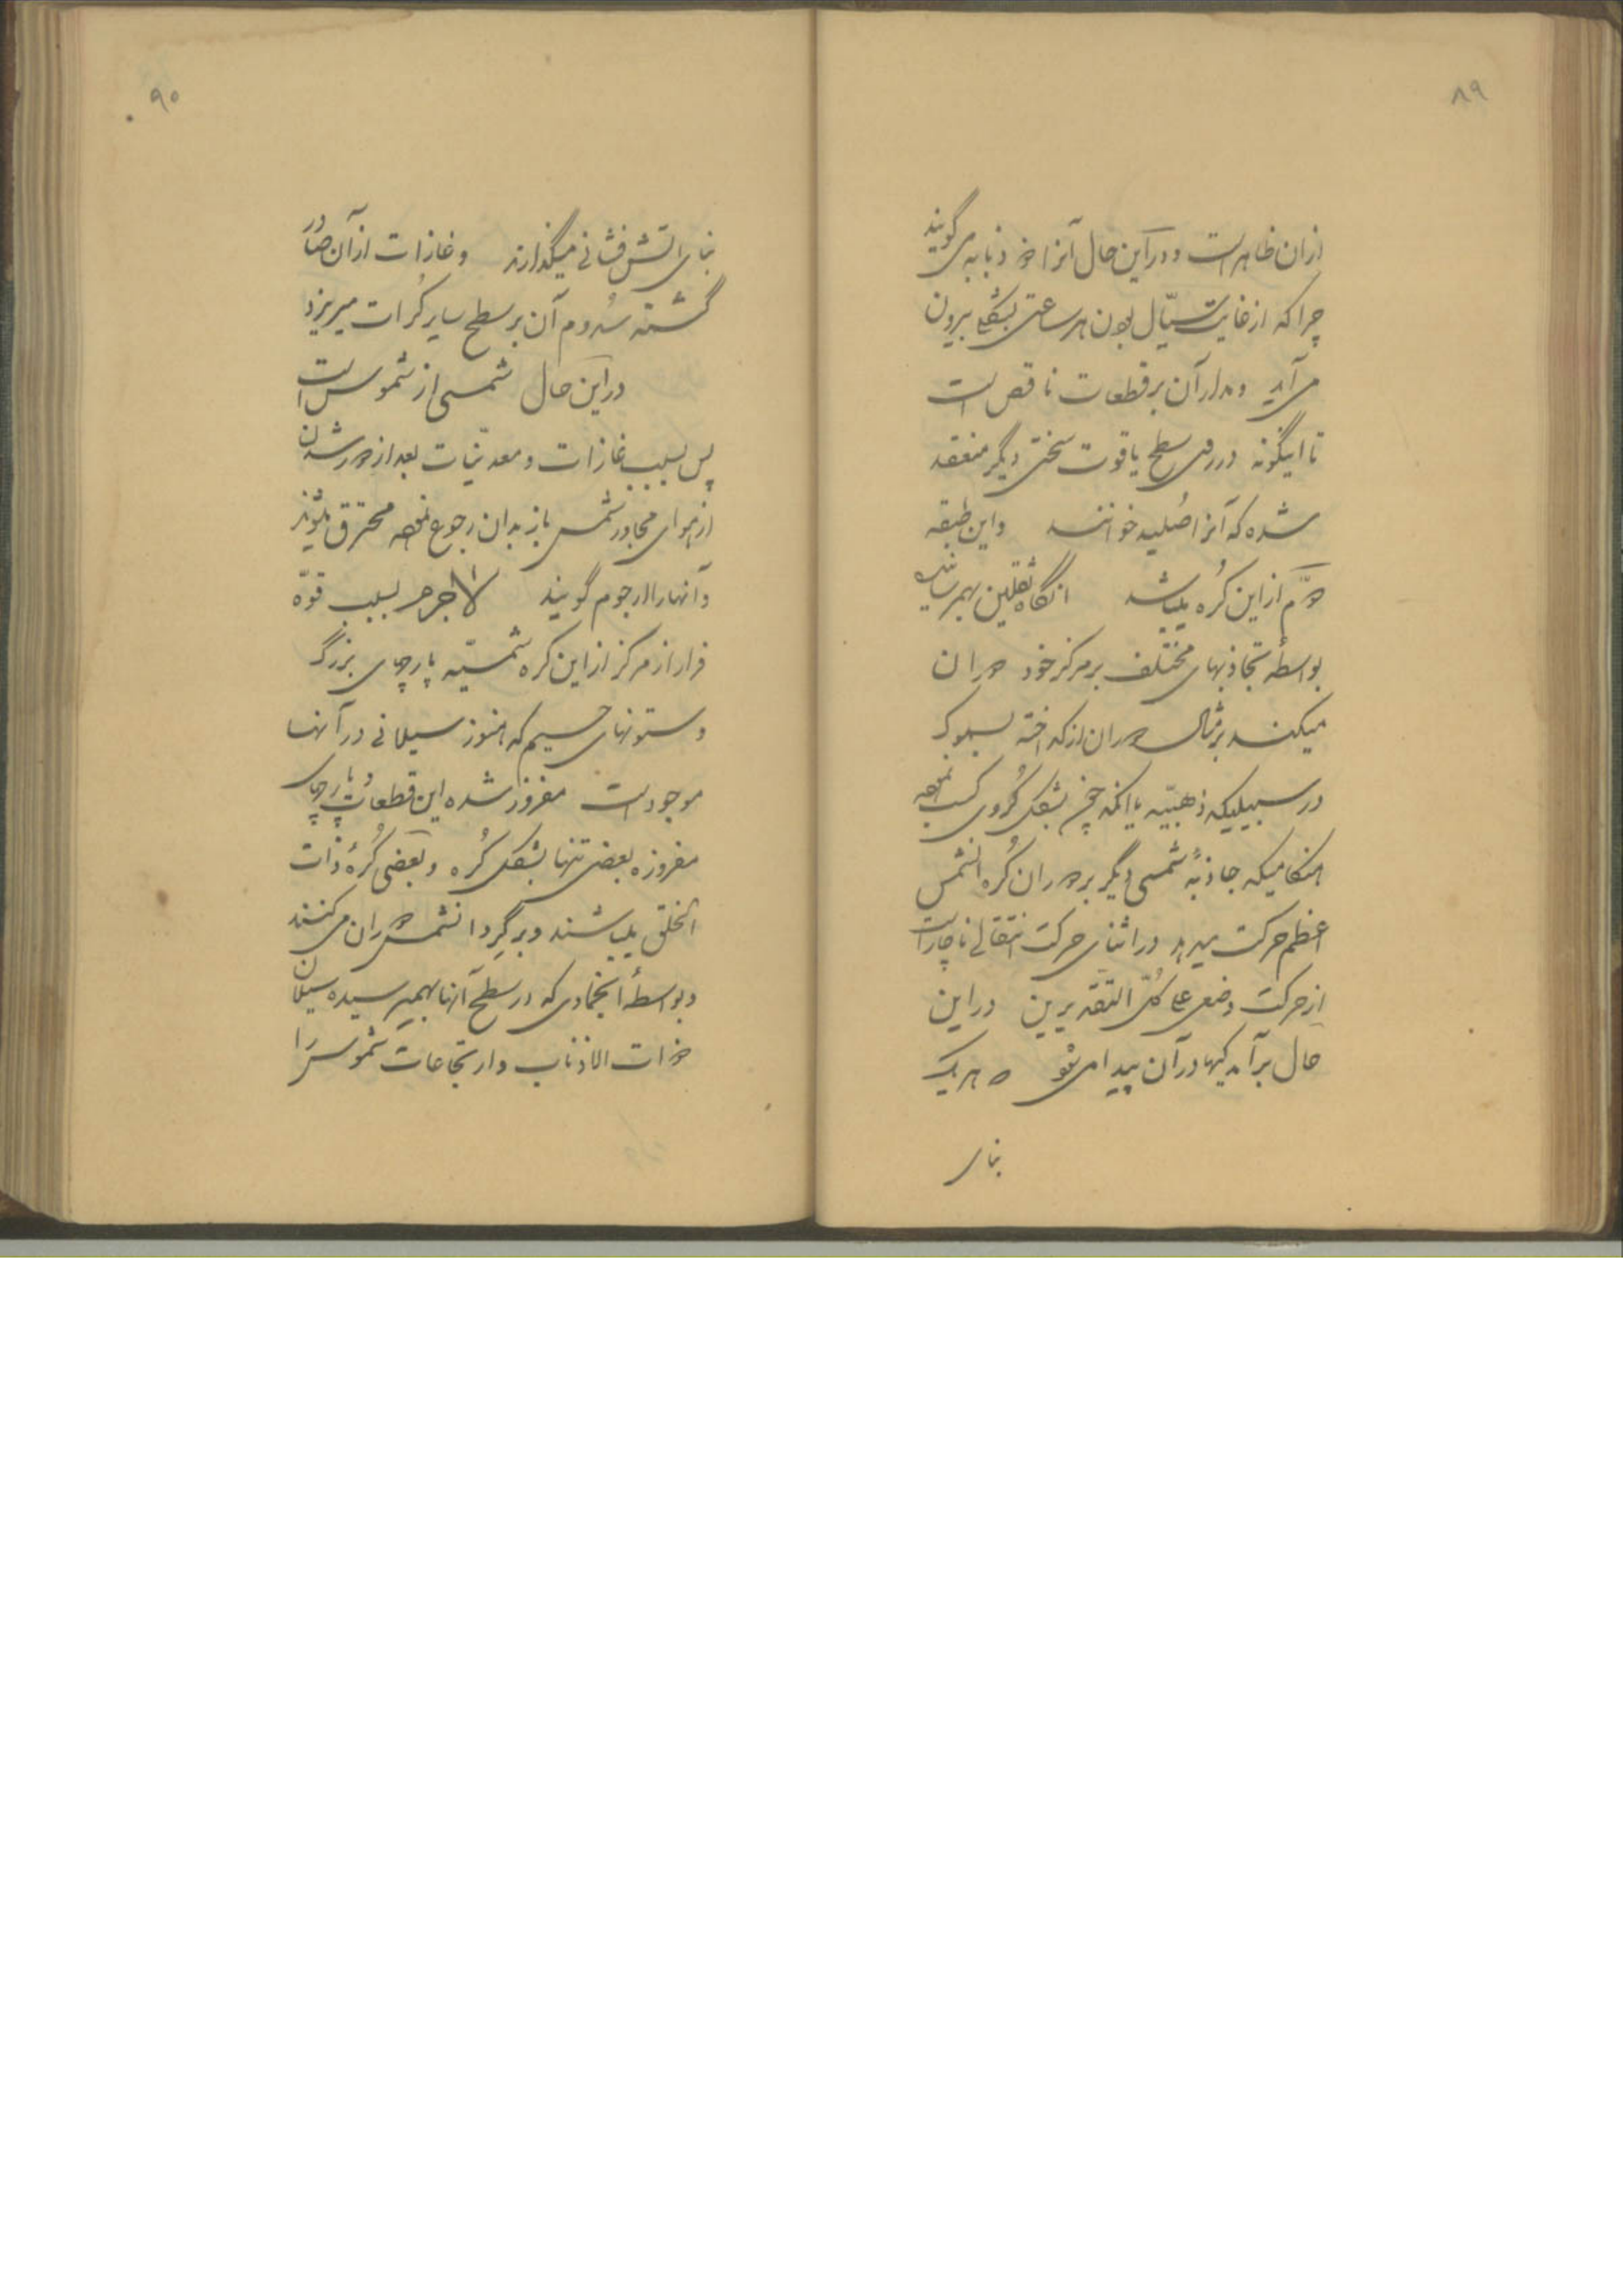 ۸۹
ازان ظاهر است و در این حال آنرا خر ذنابه میگویند
چرا که از غایت سیّال بودن هر ساعتی بشکلی بیرون
می آید و مدار آن بر قطعات ناقص است
تا اینگونه در روی سطح یاقوت سختی دیگر منعقد
شده که آنرا صُلبیه خوانند و این طبقه
دوّم از این کُره میباشد انگاه ثقلین بهمرسانیده
بواسطهٔ تجاذبهای مختلف بر مرکز خود دوران
میکند بر مثال دوران از گداخته
در سبیلیکه ذهبیّه یا آنکه بشکل کُروی کسب نموده
هنگامیکه جاذبهٔ شمسی دیگر بر دوران کُره انشمس
اعظم حرکت میدهد در اثنای حرکت انتقالی ناچار است
از حرکت وضعی علی کلّ التقدیرین در این
حال برآمدگیها در آن پیدا میشود و هر یک
بنای
۹۰
بنای آتش فشانی میگذارند و غازات از آن صادر
گشته سُدوم آن بر سطح سایر کُرات میریزد
در این حال شمسی از شموس است
پس بسبب غازات و معدنیّات بعد از دور شدن
از هوای مجاور شمس باز بدان رجوع نموده محترق میشوند
و آنها را رجوم گویند لاجرم بسبب قوّه
فرار از مرکز از این کره شمسیّه پارچهای بزرگ
و ستونهای جسیم که هنوز سیلانی در آنها
موجود است مفروز شده این قطعات و پارچهای
مفروزه بعضی تنها بشکل کُره و بعضی کُرهٔ ذات
الحلق میباشند و بر گِرد انشمس دوران می کنند
و بواسطهٔ انجمادی که در سطح آنها بهمرسیده سیلان
ذوات الاذناب و ارتجاعات شموس را